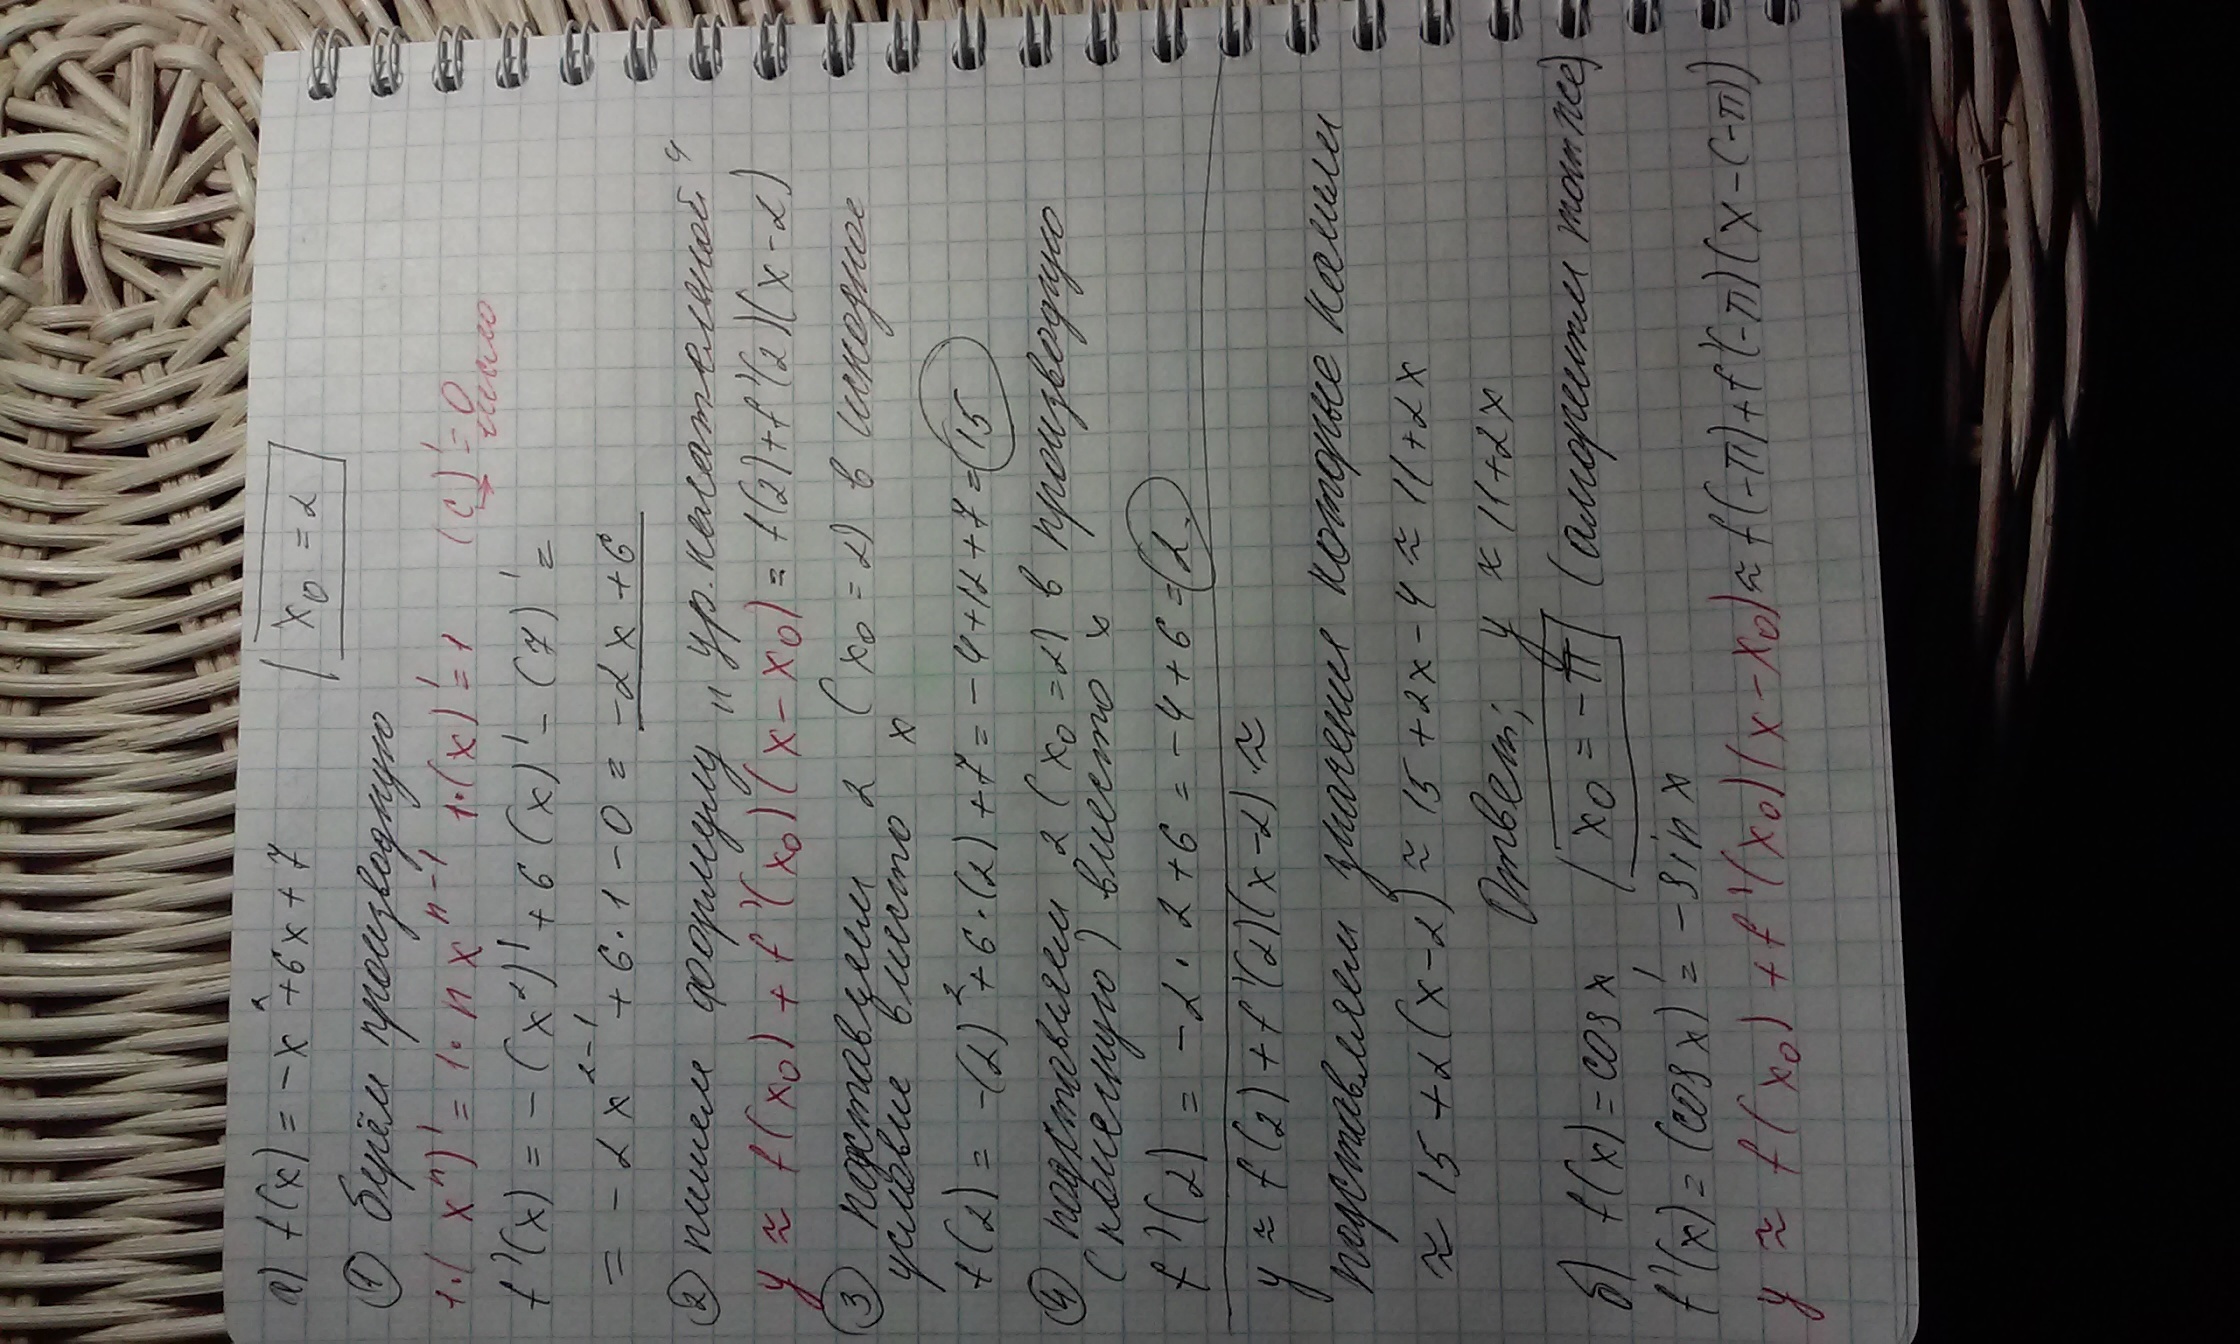 а) f(x) = -x² + 6x + 7 | x₀ = 2
① берём производную
1·(xⁿ)' = 1·n xⁿ⁻¹ 1·(x)' = 1 (c)' = 0
число
f'(x) = -(x²)' + 6(x)' - (7)' =
= -2x²⁻¹ + 6·1 - 0 = -2x + 6
② пишем формулу "ур. касательной"
y ≈ f(x₀) + f'(x₀)(x - x₀) = f(2) + f'(2)(x - 2)
③ подставляем 2 (x₀ = 2) в исходное
условие вместо x
f(2) = -(2)² + 6·(2) + 7 = -4 + 12 + 7 = 15
④ подставляем 2 (x₀ = 2) в производную
) вместо x
f'(2) = -2·2 + 6 = -4 + 6 = 2
y ≈ f(2) + f'(2)(x - 2) ≈
подставляем значения которые нашли
≈ 15 + 2(x - 2) ≈ 15 + 2x - 4 ≈ 11 + 2x
Ответ: y ≈ 11 + 2x
б) f(x) = cos x | x₀ = -π (алгоритм тот же)
f'(x) = (cos x)' = -sin x
y ≈ f(x₀) + f'(x₀)(x - x₀) ≈ f(-π) + f'(-π)(x - (-π))